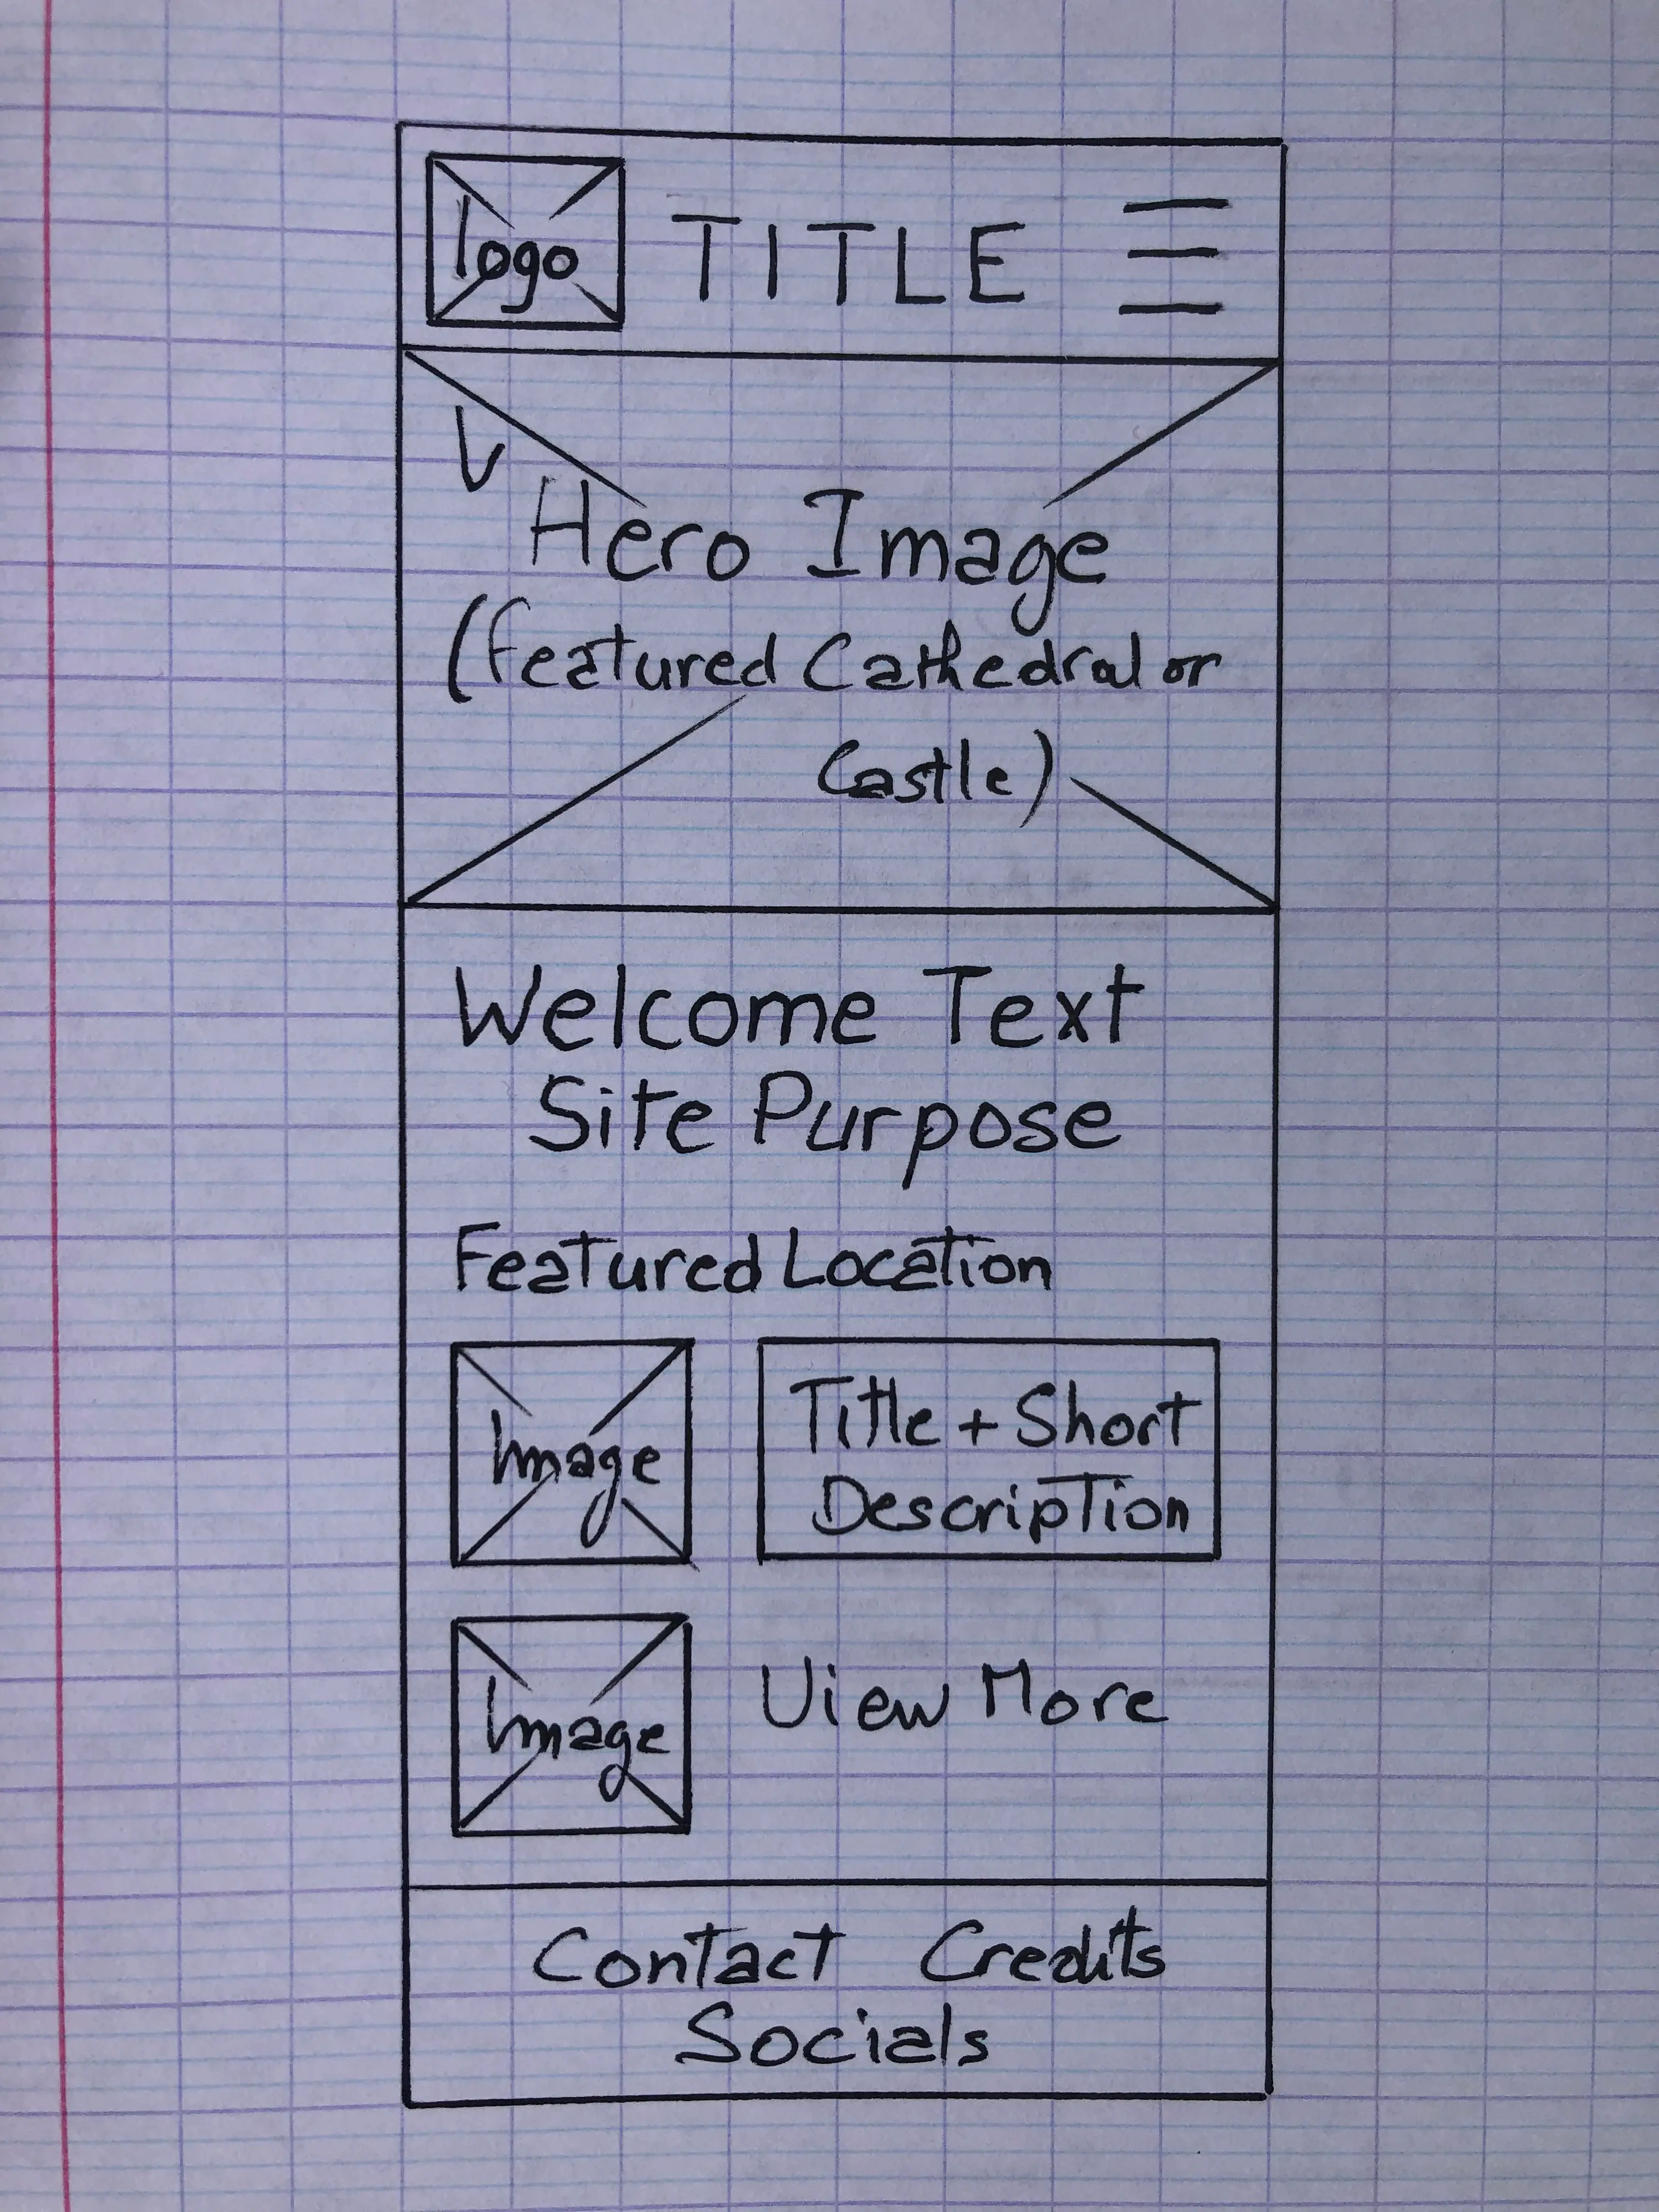 logo TITLE
Hero Image
(Featured Cathedral or
Castle)
Welcome Text
Site Purpose
Featured Location
Image
Title + Short
Description
Image
View More
Contact Credits
Socials